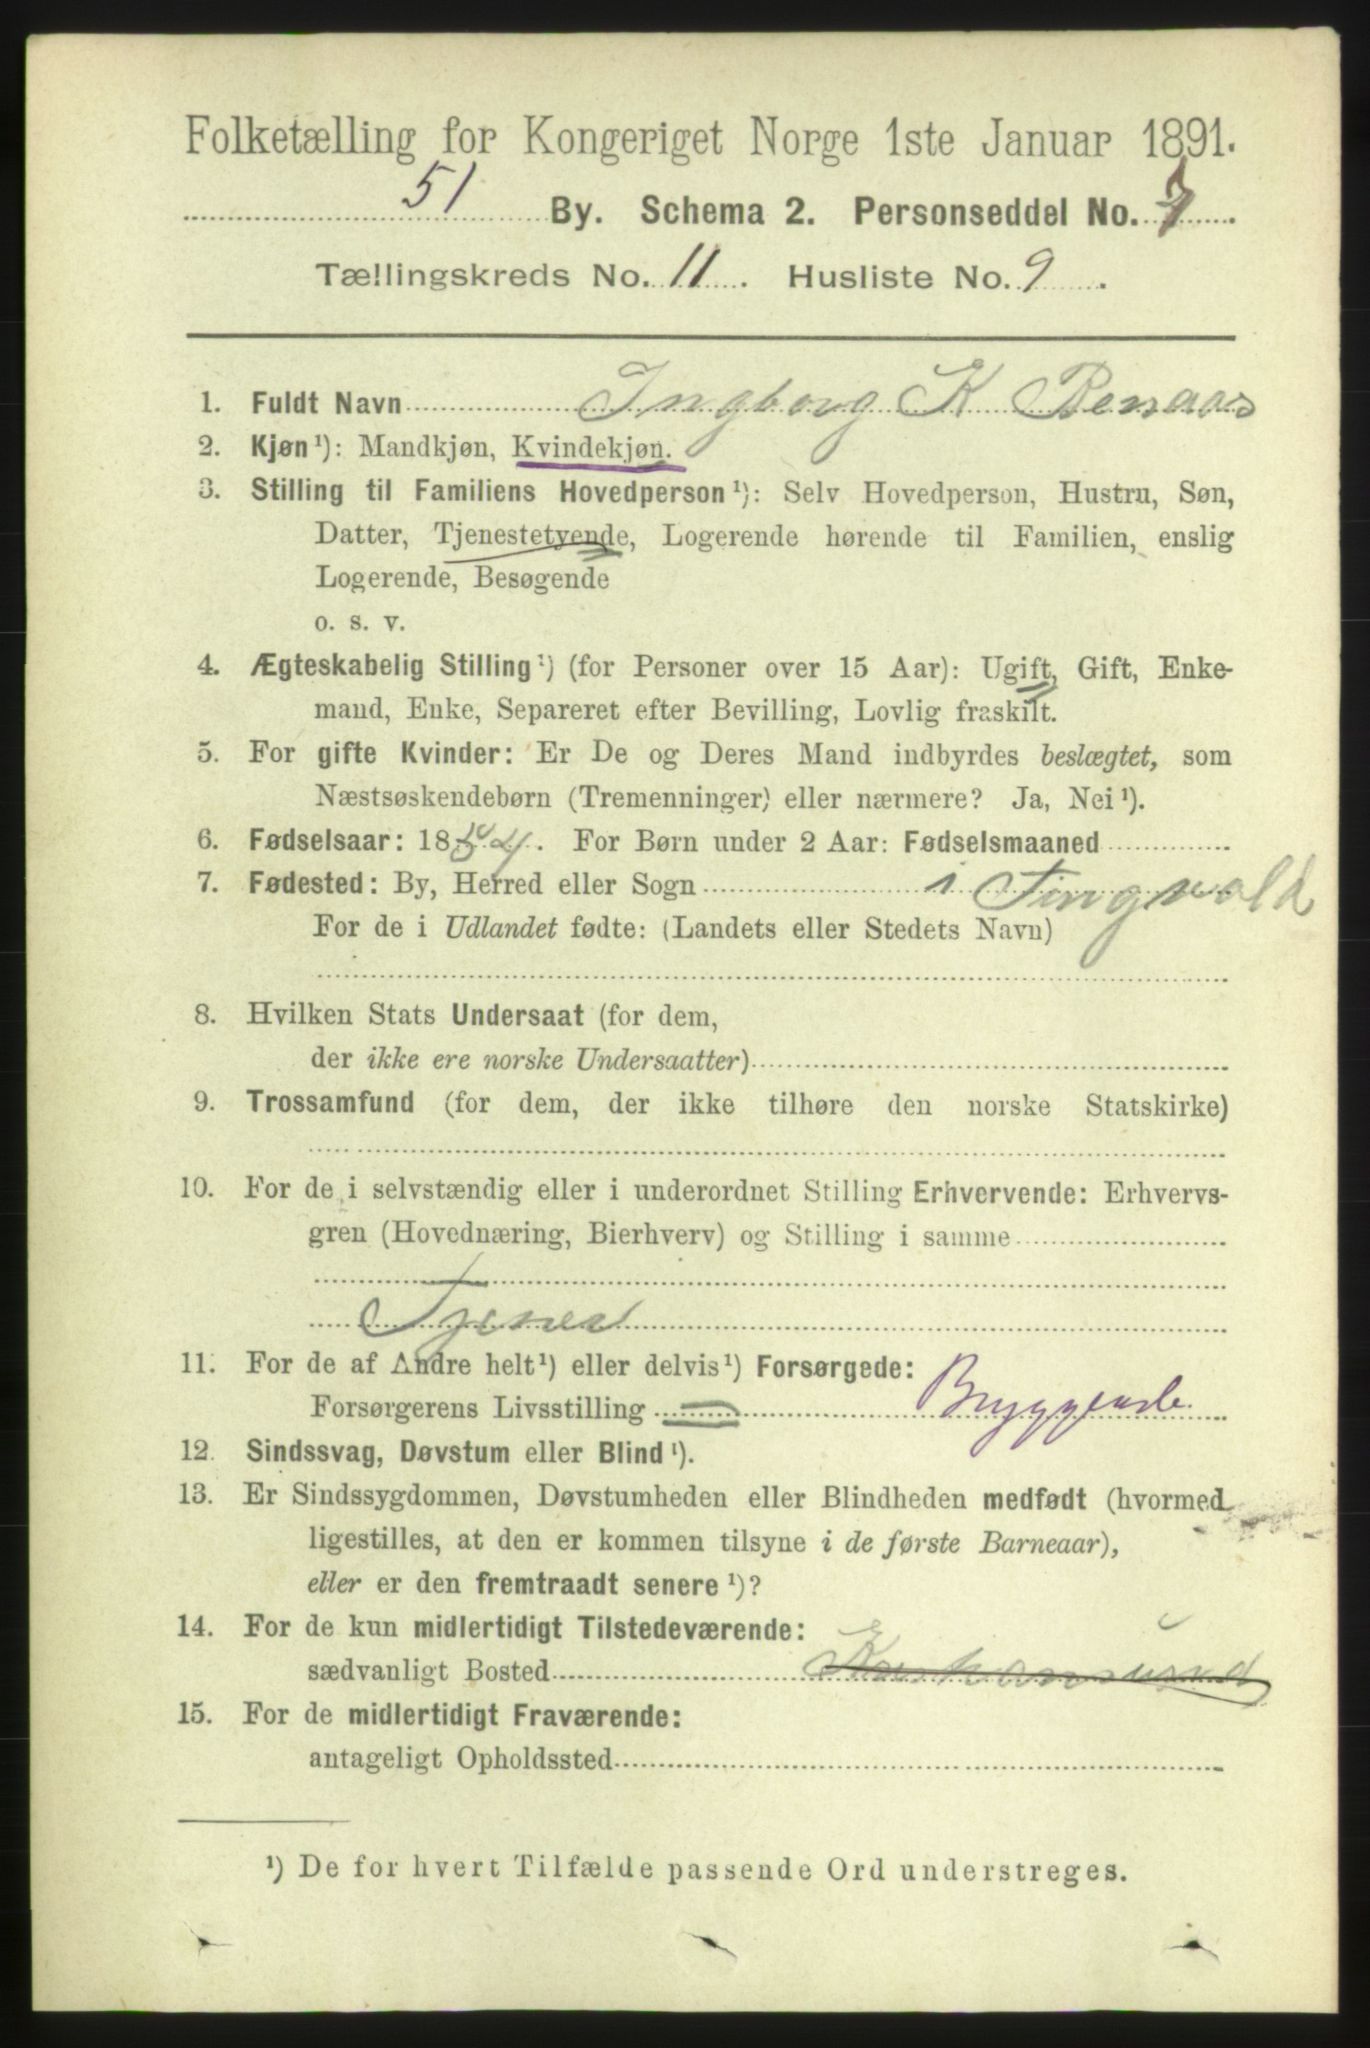 Folketælling for Kongeriget Norge 1ste Januar 1891.
51 By. Schema 2. Personseddel No. 7.
Tællingskreds No. 11. Husliste No. 9.
1. Fuldt Navn Ingborg K Benaas
2. Kjøn¹): Mandkjøn, Kvindekjøn.
3. Stilling til Familiens Hovedperson¹): Selv Hovedperson, Hustru, Søn,
Datter, Tjenestetyende, Logerende hørende til Familien, enslig
Logerende, Besøgende
o. s. v.
4. Ægteskabelig Stilling¹) (for Personer over 15 Aar): Ugift, Gift, Enke-
mand, Enke, Separeret efter Bevilling, Lovlig fraskilt.
5. For gifte Kvinder: Er De og Deres Mand indbyrdes beslægtet, som
Næstsøskendebørn (Tremenninger) eller nærmere? Ja, Nei¹).
6. Fødselsaar: 18 . For Børn under 2 Aar: Fødselsmaaned
7. Fødested: By, Herred eller Sogn i Tingvold
For de i Udlandet fødte: (Landets eller Stedets Navn)
8. Hvilken Stats Undersaat (for dem,
der ikke ere norske Undersaatter)
9. Trossamfund (for dem, der ikke tilhøre den norske Statskirke)
10. For de i selvstændig eller i underordnet Stilling Erhvervende: Erhvervs-
gren (Hovednæring, Bierhverv) og Stilling i samme
11. For de af Andre helt¹) eller delvis¹) Forsørgede:
Forsørgerens Livsstilling
12. Sindssvag, Døvstum eller Blind¹).
13. Er Sindssygdommen, Døvstumheden eller Blindheden medfødt (hvormed
ligestilles, at den er kommen tilsyne i de første Barneaar),
eller er den fremtraadt senere¹)?
14. For de kun midlertidigt Tilstedeværende:
sædvanligt Bosted
15. For de midlertidigt Fraværende:
antageligt Opholdssted
¹) De for hvert Tilfælde passende Ord understreges.